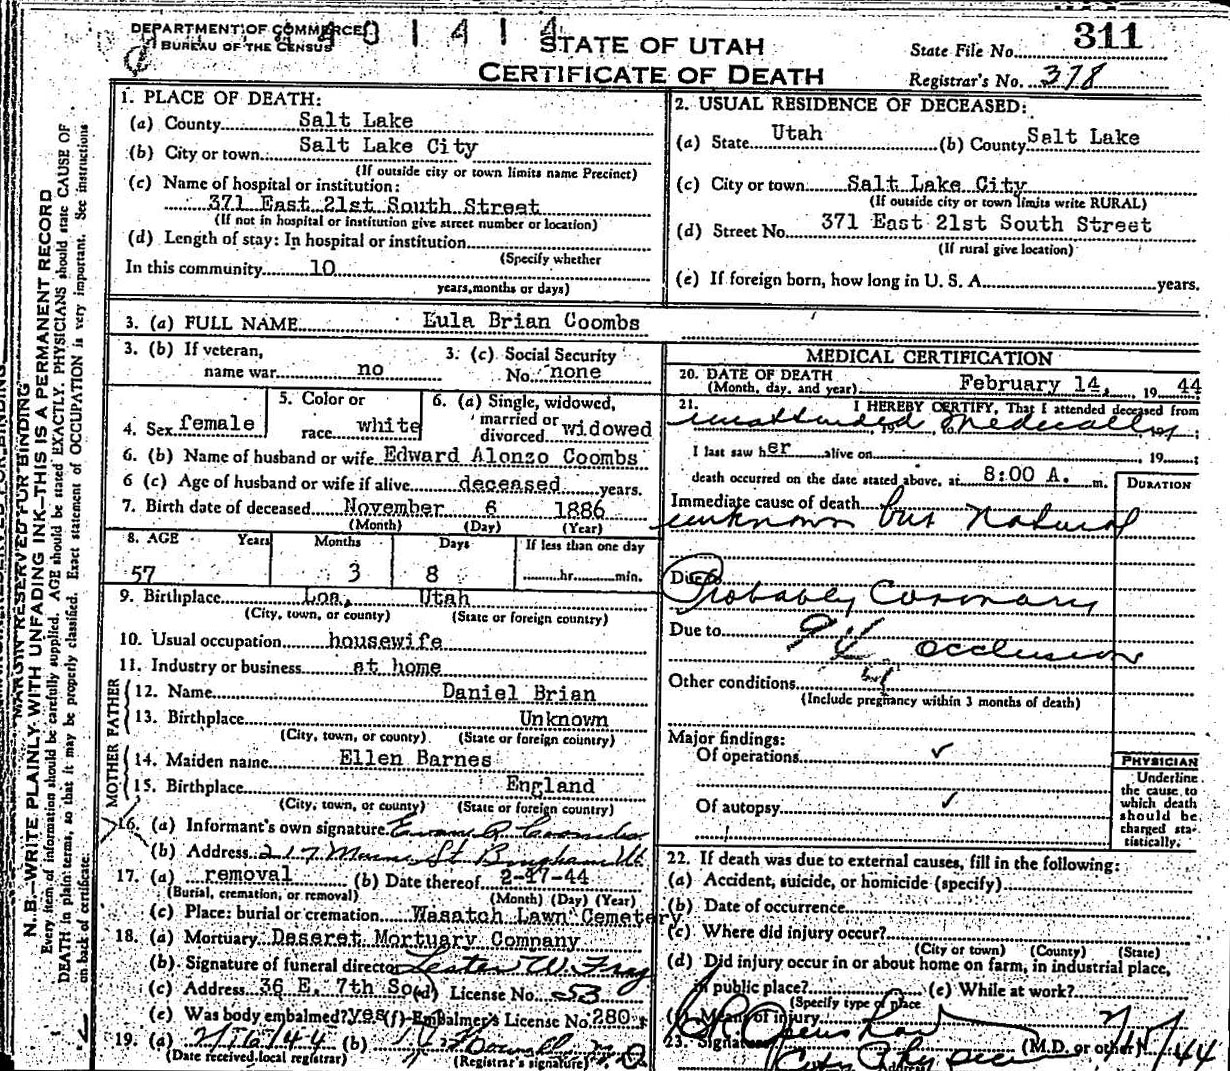 DEPARTMENT OF COMMERCE
BUREAU OF THE CENSUS
01414
STATE OF UTAH
CERTIFICATE OF DEATH
State File No. 311
Registrar's No. 378
MARGIN RESERVED FOR BINDING
N. B.—WRITE PLAINLY WITH UNFADING INK—THIS IS A PERMANENT RECORD
Every item of information should be carefully supplied. AGE should be stated EXACTLY. PHYSICIANS should state CAUSE OF
DEATH in plain terms, so that it may be properly classified. Exact statement of OCCUPATION is very important. See instructions
on back of certificate.
1. PLACE OF DEATH:
(a) County Salt Lake
(b) City or town Salt Lake City
(If outside city or town limits name Precinct)
(c) Name of hospital or institution:
371 East 21st South Street
(If not in hospital or institution give street number or location)
(d) Length of stay: In hospital or institution
(Specify whether
In this community 10
years, months or days)
2. USUAL RESIDENCE OF DECEASED:
(a) State Utah (b) County Salt Lake
(c) City or town Salt Lake City
(If outside city or town limits write RURAL)
(d) Street No. 371 East 21st South Street
(If rural give location)
(e) If foreign born, how long in U. S. A. years.
3. (a) FULL NAME Eula Brian Coombs
3. (b) If veteran,
name war no
3. (c) Social Security
No. none
4. Sex female
5. Color or
race white
6. (a) Single, widowed,
married or
divorced widowed
6. (b) Name of husband or wife Edward Alonzo Coombs
6 (c) Age of husband or wife if alive deceased years.
7. Birth date of deceased November 6 1886
(Month) (Day) (Year)
8. AGE Years Months Days If less than one day
57 3 8 hr. min.
9. Birthplace Loa, Utah
(City, town, or county) (State or foreign country)
10. Usual occupation housewife
11. Industry or business at home
FATHER
12. Name Daniel Brian
13. Birthplace Unknown
(City, town, or county) (State or foreign country)
MOTHER
14. Maiden name Ellen Barnes
15. Birthplace England
(City, town, or county) (State or foreign country)
16. (a) Informant's own signature Coombs
(b) Address 217 Main St Bingham Ut.
17. (a) removal (b) Date thereof 2-17-44
(Burial, cremation, or removal) (Month) (Day) (Year)
(c) Place: burial or cremation Wasatch Lawn Cemetery
18. (a) Mortuary Deseret Mortuary Company
(b) Signature of funeral director Lester W.
(c) Address 36 E. 7th So. (d) License No. 53
(e) Was body embalmed? yes (f) Embalmer's License No. 280
19. (a) 2/16/44 (b) M.D.
(Date received local registrar) (Registrar's signature)
MEDICAL CERTIFICATION
20. DATE OF DEATH
(Month, day, and year) February 14, 1944
21. I HEREBY CERTIFY, That I attended deceased from
unattended medically
I last saw her alive on 19
death occurred on the date stated above, at 8:00 A. m.
DURATION
Immediate cause of death
unknown but natural
Due to
Probably Coronary
Due to 94 occlusion
Other conditions
(Include pregnancy within 3 months of death)
Major findings:
Of operations ✓
Of autopsy ✓
PHYSICIAN
Underline
the cause to
which death
should be
charged sta-
tistically.
22. If death was due to external causes, fill in the following:
(a) Accident, suicide, or homicide (specify)
(b) Date of occurrence
(c) Where did injury occur?
(City or town) (County) (State)
(d) Did injury occur in or about home on farm, in industrial place,
in public place? (e) While at work?
(Specify type of place
(f) Means of injury
23. Signature (M.D. or other)
City Physician